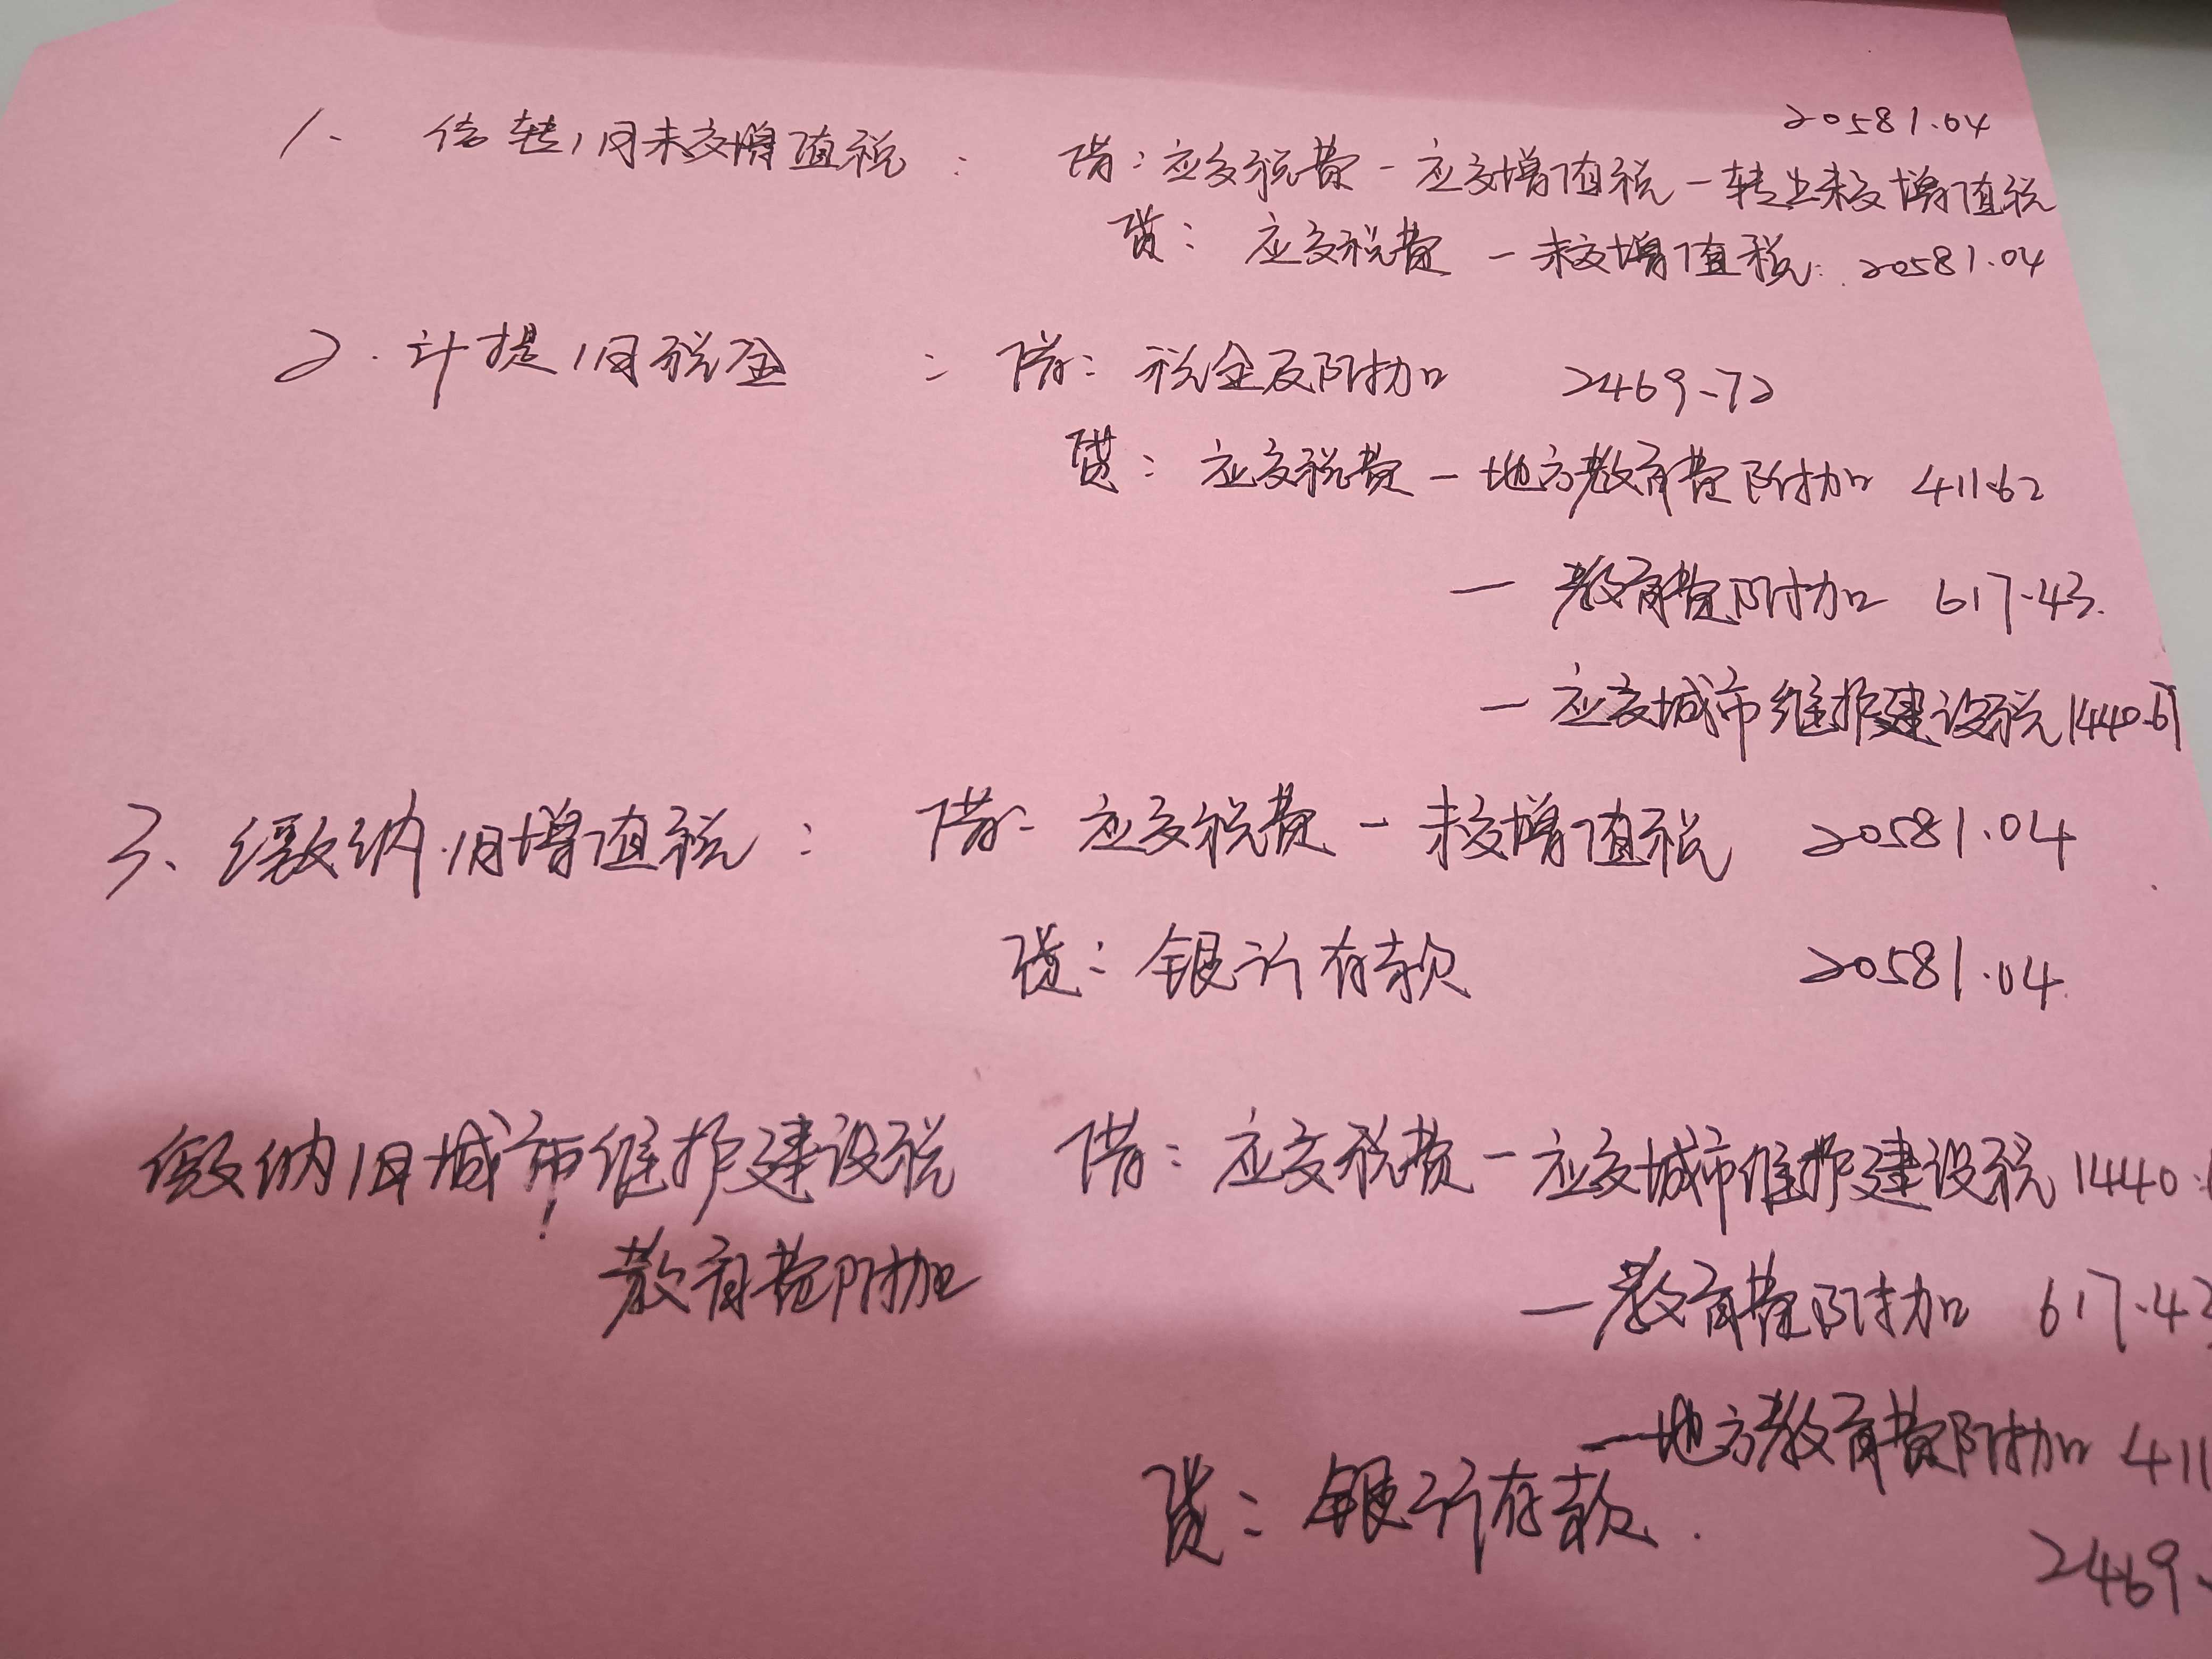 20581.04
1、结转1月未交增值税： 借：应交税费－应交增值税－转出未交增值税
贷：应交税费－未交增值税：20581.04
2.计提1月税金：借：税金及附加 2469.72
贷：应交税费－地方教育费附加 411.62
－教育费附加 617.43.
－应交城市维护建设税 1440.67
3、缴纳1月增值税：借：应交税费－未交增值税 20581.04
贷：银行存款 20581.04.
缴纳1月城市维护建设税 借：应交税费－应交城市维护建设税 1440.
教育费附加 －教育费附加 617.43
－地方教育费附加 411
贷：银行存款.
2469.